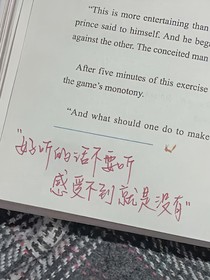 "This is more entertaining than
prince said to himself. And he began
against the other. The conceited man
After five minutes of this exercise
the game's monotony.
"And what should one do to make
"好听的话不要听
感受不到就是没有"